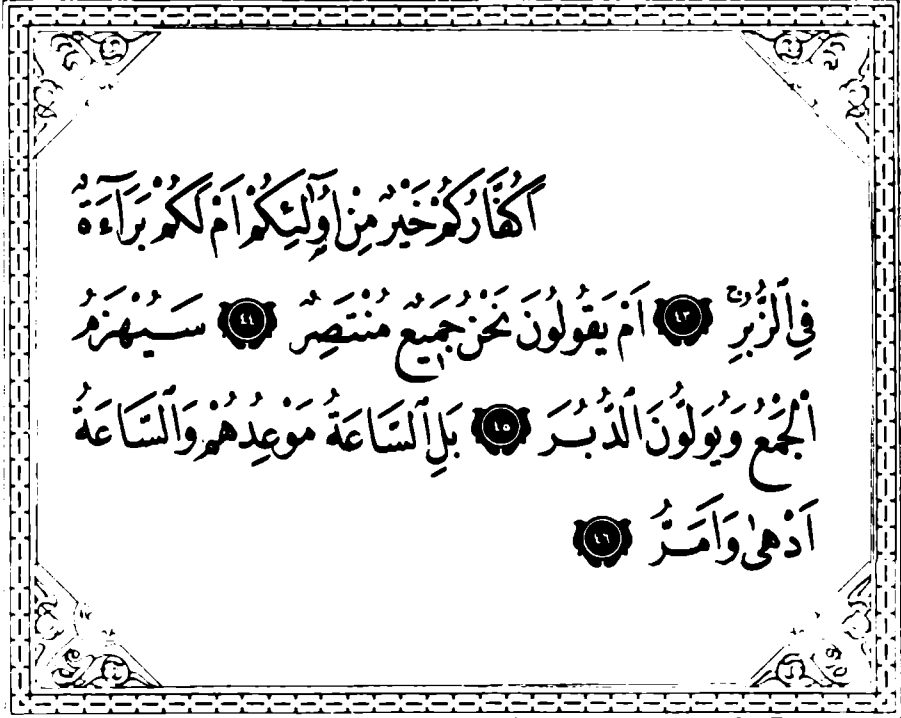 اَكُفَّارُكُمْ خَيْرٌ مِنْ اُو۬لٰٓئِكُمْ اَمْ لَكُمْ بَرَٓاءَةٌ
فِي الزُّبُرِۚ ﴿٤٣﴾ اَمْ يَقُولُونَ نَحْنُ جَم۪يعٌ مُنْتَصِرٌ ﴿٤٤﴾ سَيُهْزَمُ
الْجَمْعُ وَيُوَلُّونَ الدُّبُرَ ﴿٤٥﴾ بَلِ السَّاعَةُ مَوْعِدُهُمْ وَالسَّاعَةُ
اَدْهٰى وَاَمَرُّ ﴿٤٦﴾